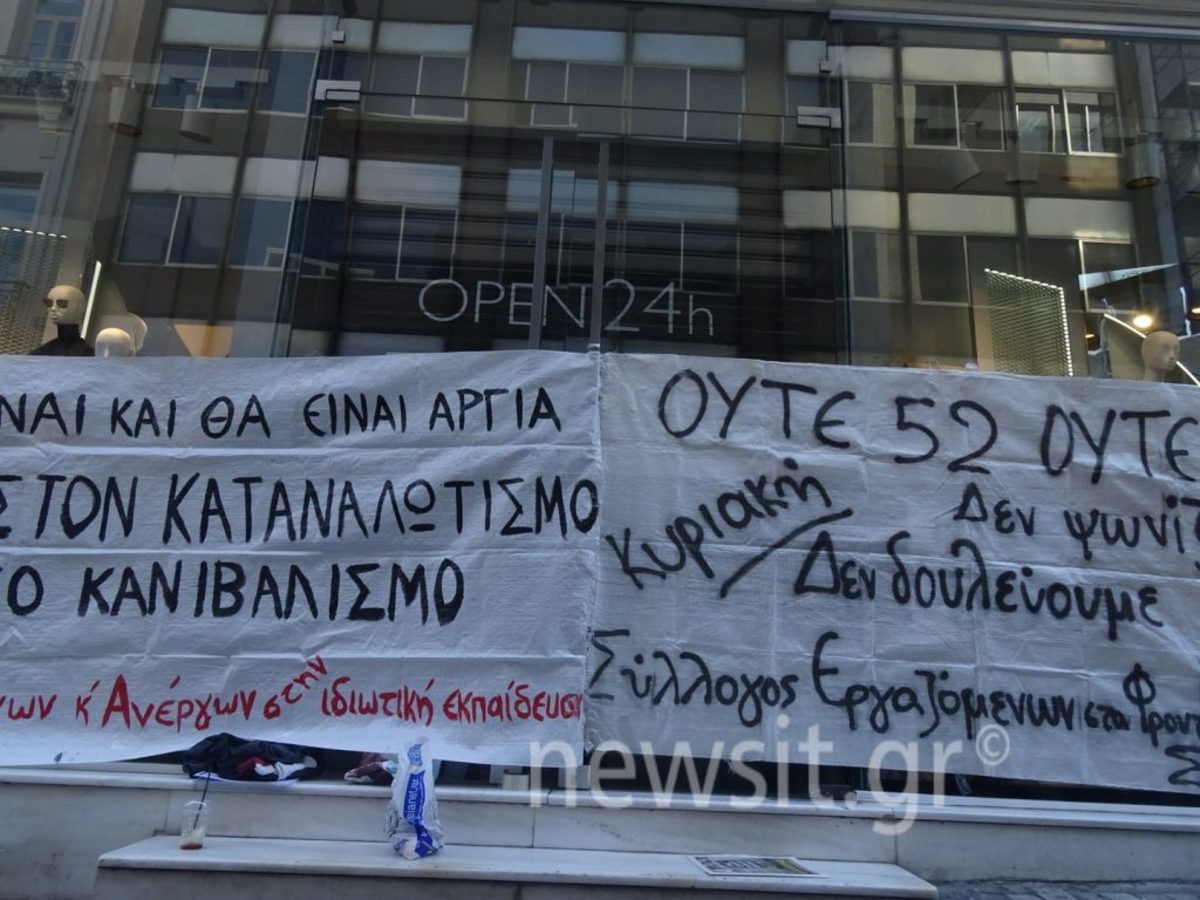 OPEN 24h
ΝΑΙ ΚΑΙ ΘΑ ΕΙΝΑΙ ΑΡΓΙΑ
ΣΤΟΝ ΚΑΤΑΝΑΛΩΤΙΣΜΟ
ΤΟ ΚΑΝΙΒΑΛΙΣΜΟ
νων κ' Ανέργων στην ιδιωτική εκπαίδευση
ΟΥΤΕ 52 ΟΥΤΕ
Κυριακή Δεν ψωνίζ
Δεν δουλεύουμε
Σύλλογος Εργαζόμενων στα Φροντ
newsit.gr©